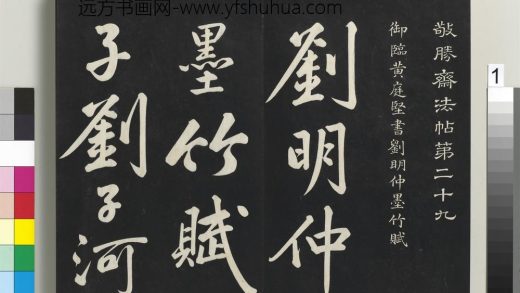 远方书画网-www.yfshuhua.com
敬勝齋法帖第二十九
御臨黄庭堅書劉明仲墨竹賦
劉明仲
墨竹賦
子劉子河
1